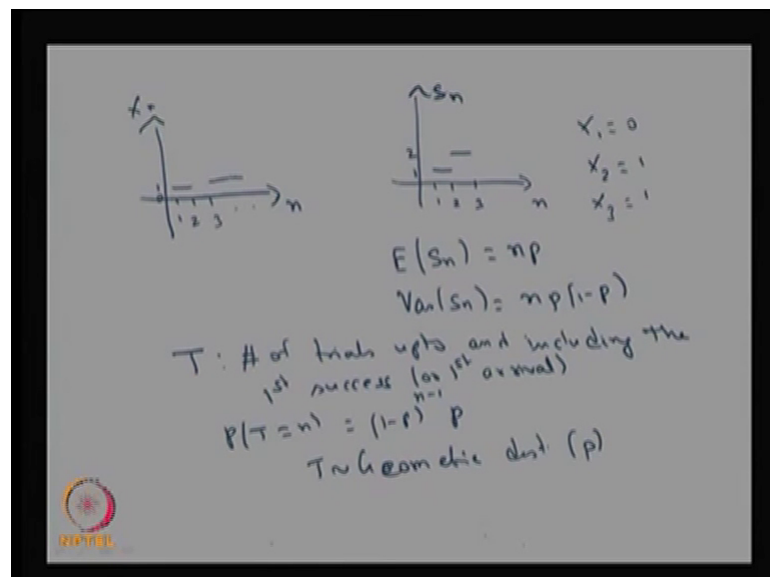 X.
1
0
1 2 3 . . .
n
Sn
2
1
1 2 3
n
X₁ = 0
X₂ = 1
X₃ = 1
E(Sn) = np
Var(Sn) = np(1-p)
T : # of trials upto and including the
1st success (or 1st arrival)
P(T = n) = (1-p)ⁿ⁻¹ p
T ~ Geometric dist. (p)
NPTEL